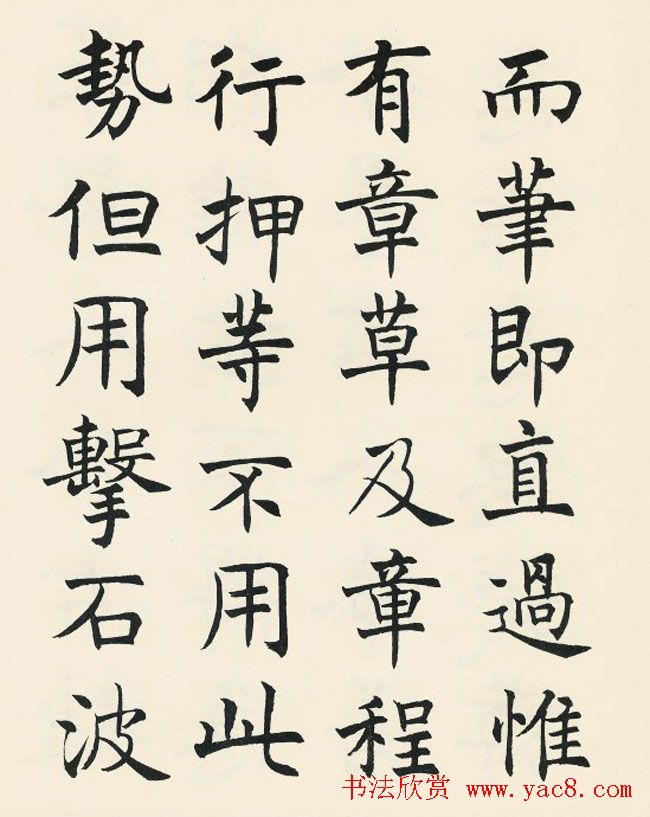 而筆即直過惟
有章草及章程
行押等不用此
勢但用擊石波
书法欣赏 www.yac8.com